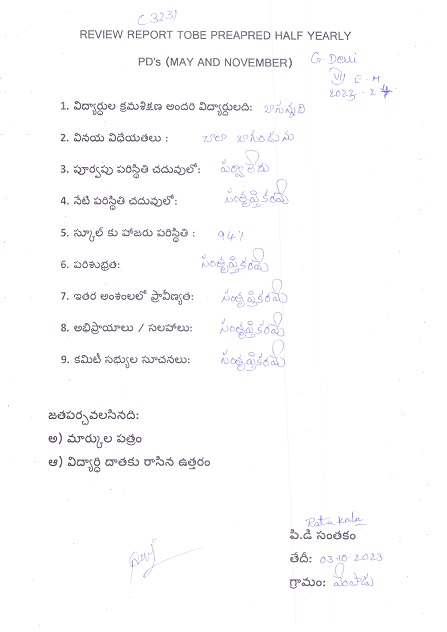 (323)
REVIEW REPORT TOBE PREAPRED HALF YEARLY
PD's (MAY AND NOVEMBER)
G. Devi
VII E-M
2023-24
1. విద్యార్థుల క్రమశిక్షణ అందరి విద్యార్థులది: బాగున్నది
2. వినయ విధేయతలు : చాలా బాగుండును
3. పూర్వపు పరిస్థితి చదువులో: పర్వాలేదు
4. నేటి పరిస్థితి చదువులో: సంతృప్తికరమే
5. స్కూల్ కు హాజరు పరిస్థితి : 94%
6. పరిశుభ్రత: సంతృప్తికరమే
7. ఇతర అంశంలలో ప్రావీణ్యత: సంతృప్తికరమే
8. అభిప్రాయాలు / సలహాలు: సంతృప్తికరమే
9. కమిటీ సభ్యుల సూచనలు: సంతృప్తికరమే
జతపర్చవలసినది:
అ) మార్కుల పత్రం
ఆ) విద్యార్ధి దాతకు రాసిన ఉత్తరం
పి.డి సంతకం
తేదీ: 03-10 2023
గ్రామం: